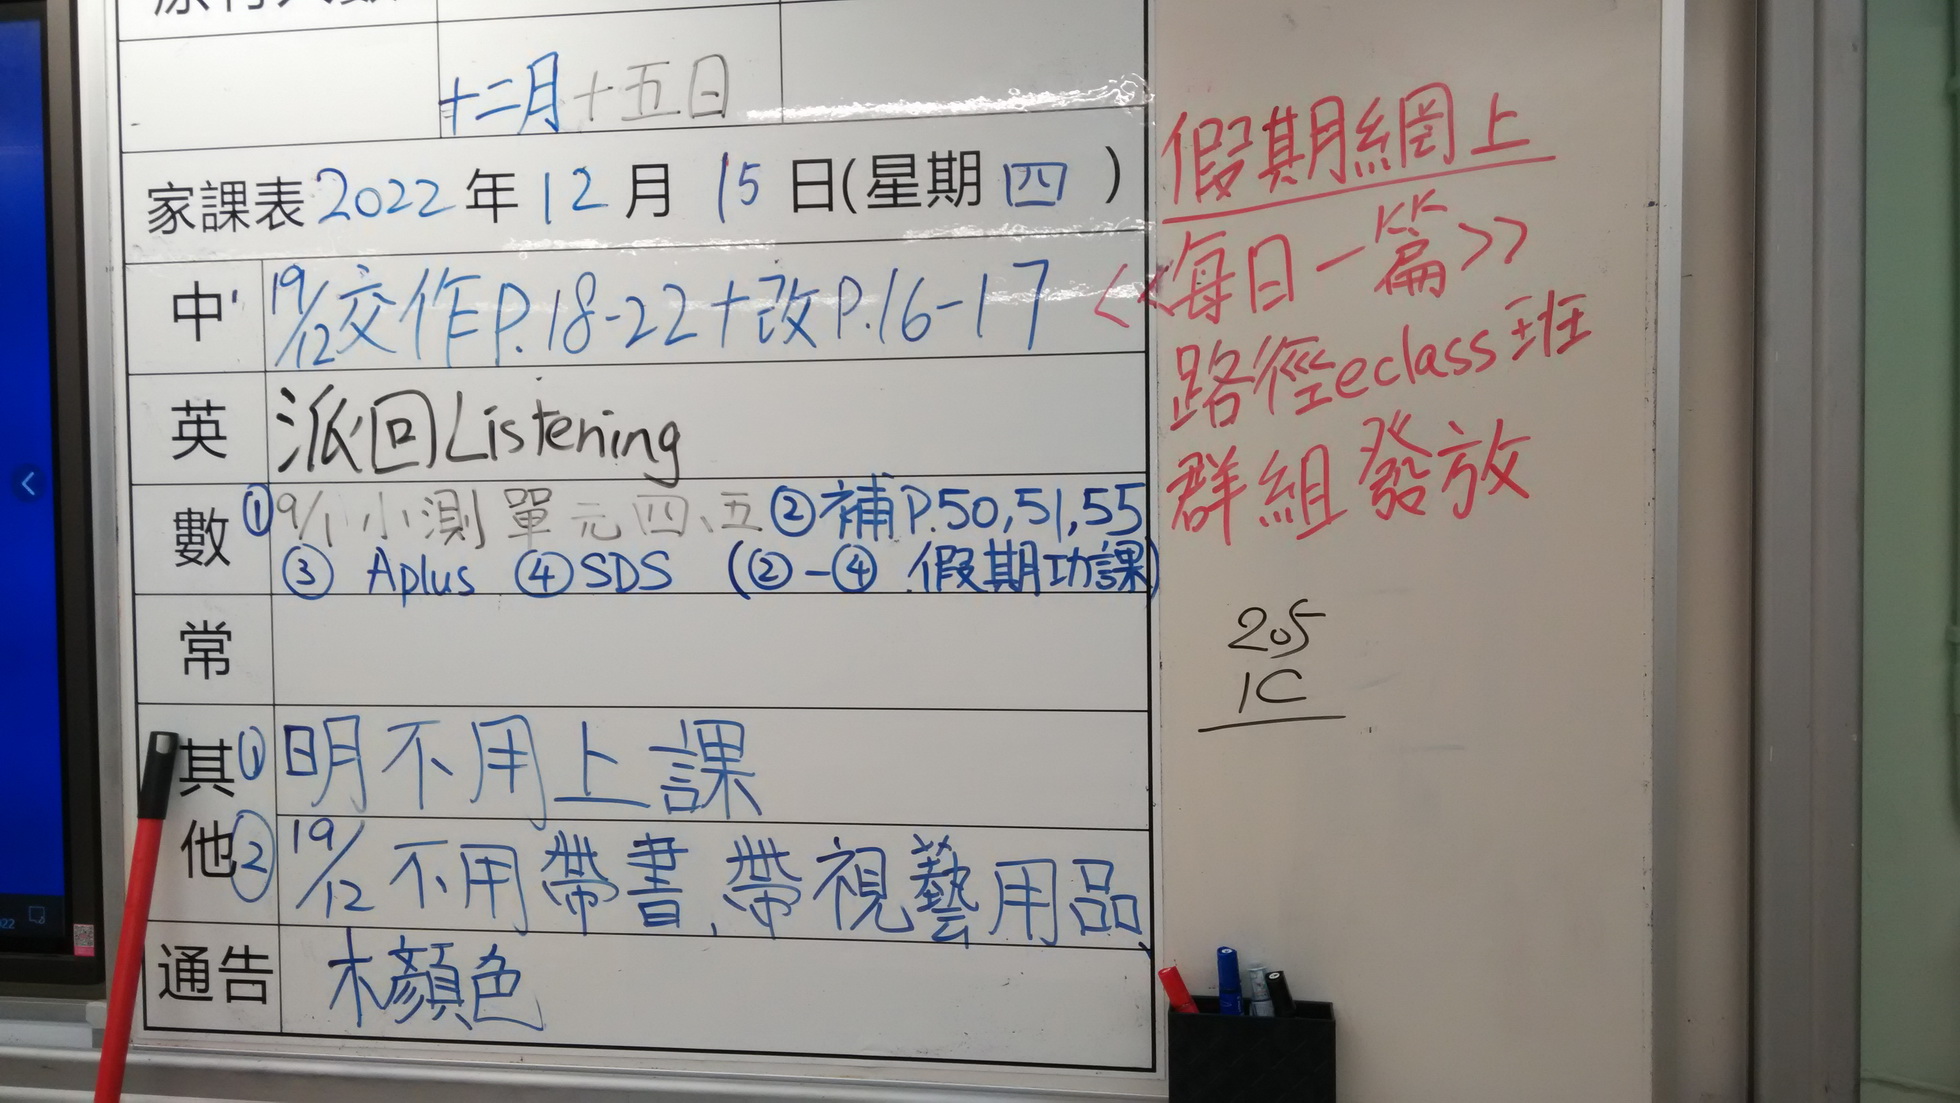 十二月十五日
家課表 2022 年 12 月 15 日(星期 四 )
中 19/12 交作P.18-22+改P.16-17
英 派回Listening
數 ① 9/1 小測單元四、五 ② 補P.50,51,55
③ Aplus ④ SDS (②-④ 假期功課)
常
其他 ① 明不用上課
② 19/12 不用帶書,帶視藝用品、
通告 木顏色
假期網上
<<每日一篇>>
路徑eclass班
群組發放
205
1C